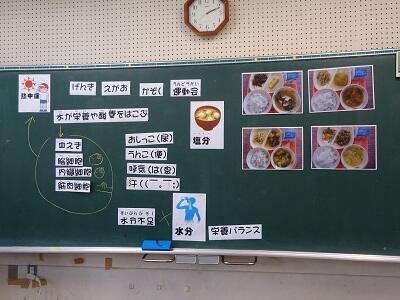 げんき
えがお
かぞく
うんどうかい
運動会
熱中症
水が栄養や酸素をはこぶ
血えき
脳細胞
内臓細胞
筋肉細胞
おしっこ(尿)
うんこ(便)
呼気(はく息)
汗(
塩分
すいぶんぶそく
水分不足
水分
栄養バランス